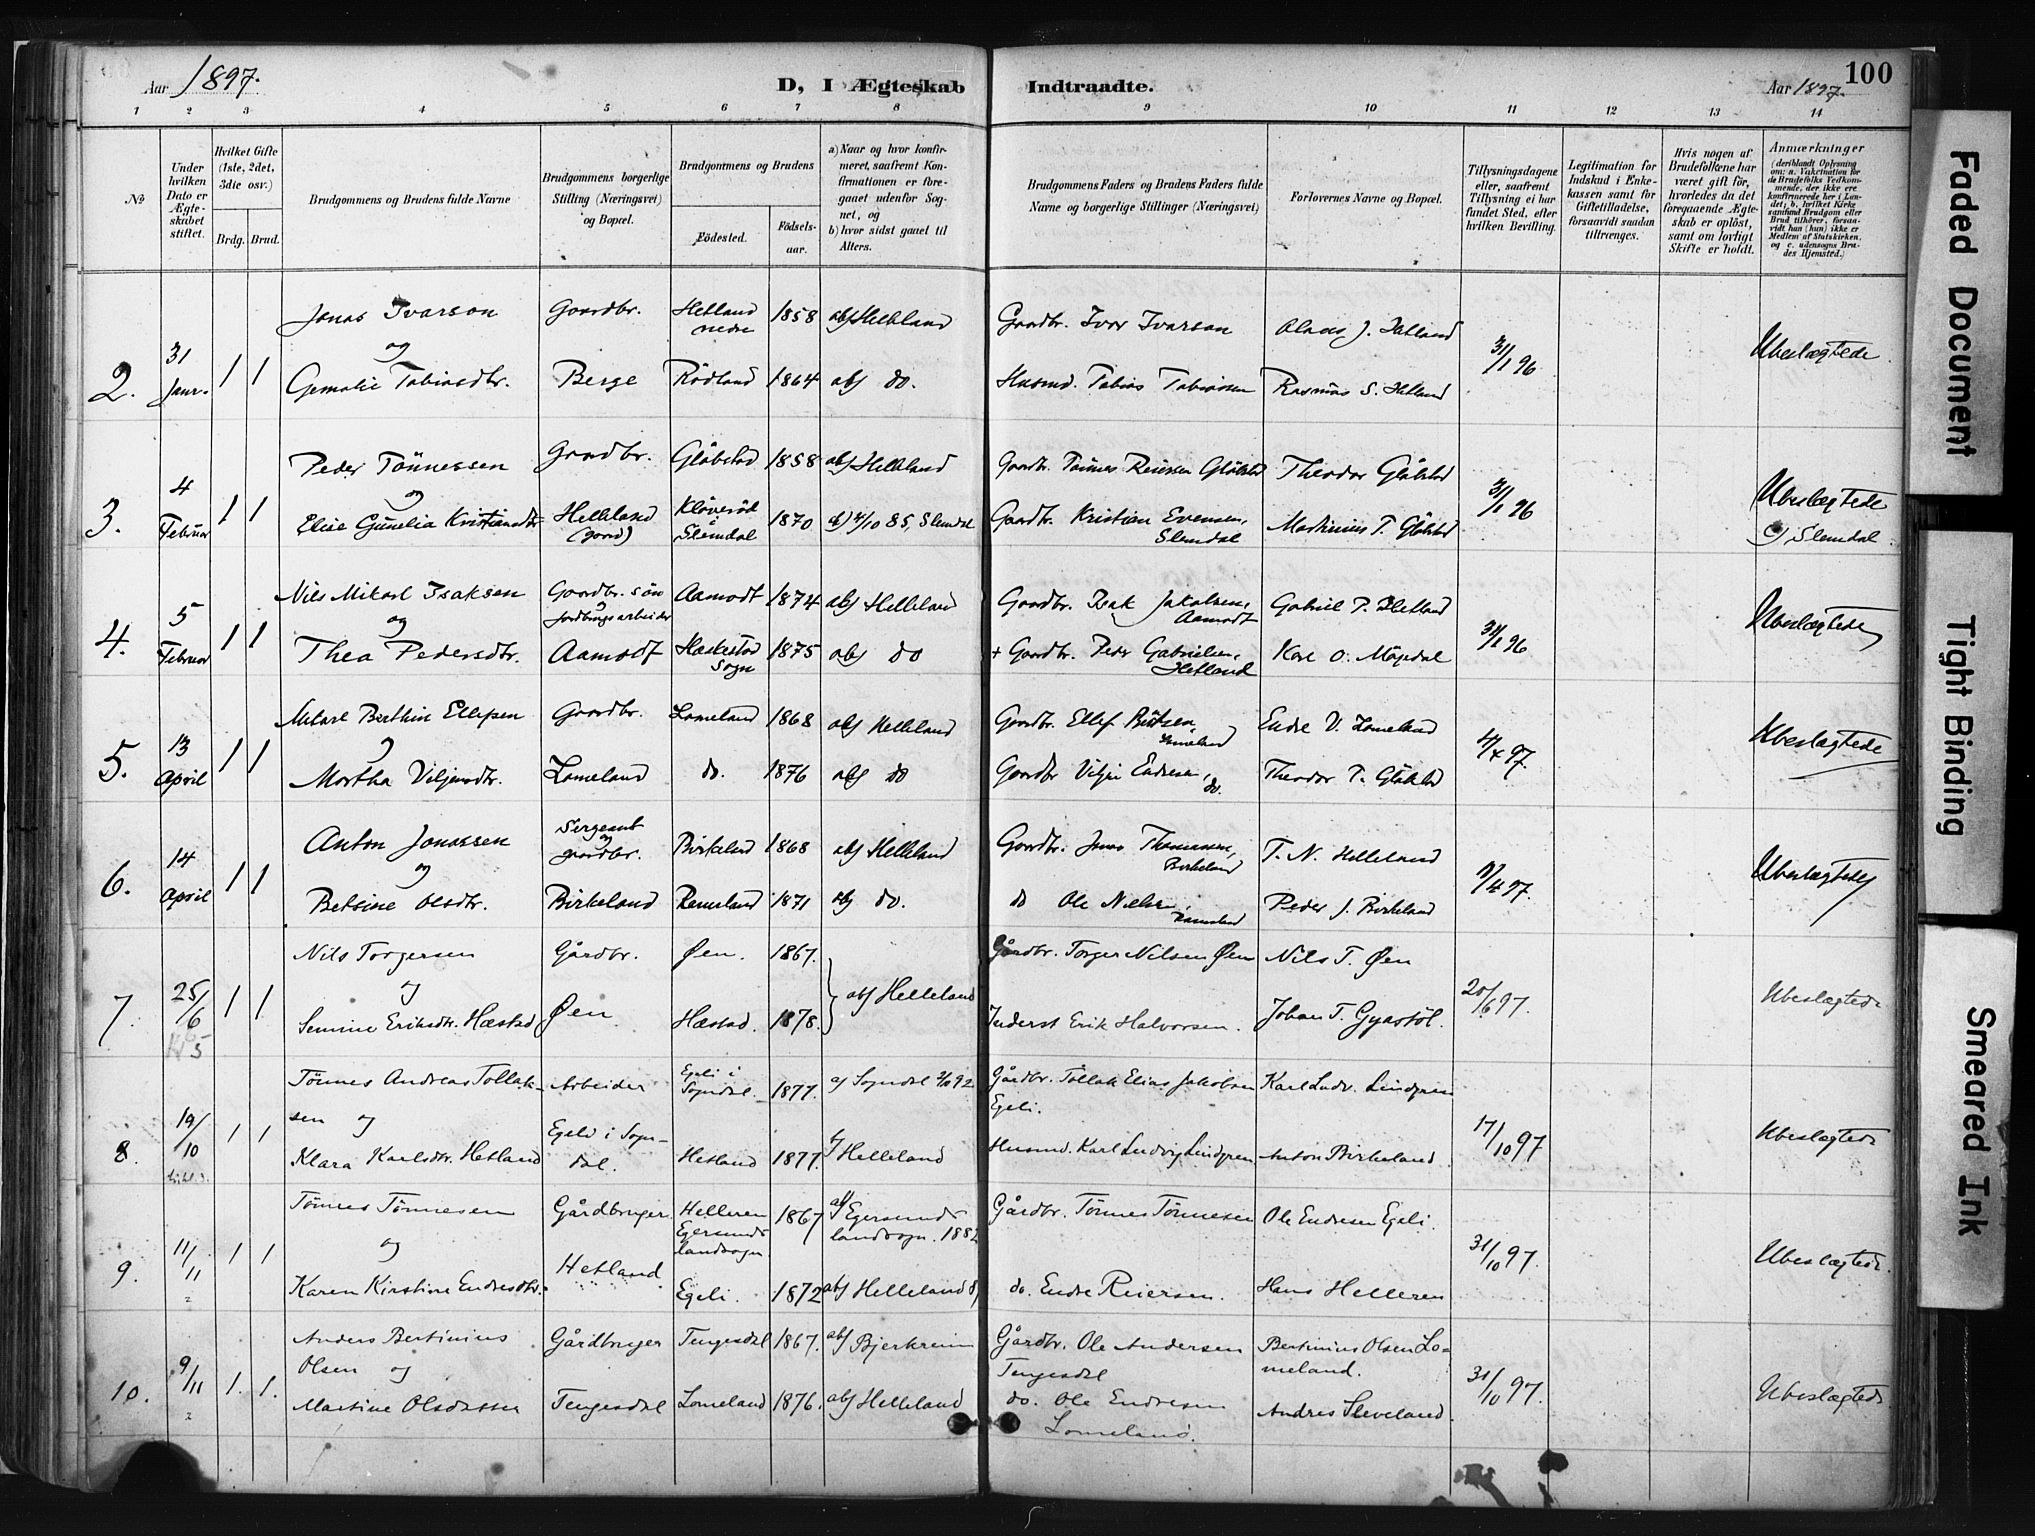 Aar 1897. D, I Ægteskab Indtraadte. Aar 1897. 100
1 2 3 4 5 6 7 8 9 10 11 12 13 14
№
Under hvilken Dato er Ægteskabet stiftet.
Hvilket Gifte (1ste, 2det, 3die osv.)
Brdg. Brud.
Brudgommens og Brudens fulde Navne
Brudgommens borgerlige Stilling (Næringsvei) og Bopæl.
Brudgommens og Brudens
Födested. Födselsaar.
a) Naar og hvor konfirmeret, saafremt Konfirmationen er foregaaet udenfor Sognet, og
b) hvor sidst gaaet til Alters.
Brudgommens Faders og Brudens Faders fulde Navne og borgerlige Stillinger (Næringsvei)
Forlovernes Navne og Bopæl.
Tillysningsdagene eller, saafremt Tillysning ei har fundet Sted, efter hvilken Bevilling.
Legitimation for Indskud i Enkekassen samt for Giftetilladelse, forsaavidt saadan tiltrænges.
Hvis nogen af Brudefolkene har været gift før, hvorledes da det foregaaende Ægteskab er oplöst, samt om lovligt Skifte er holdt.
Anmærkninger
(deriblandt Oplysning om: a. Vakcination for de Brudefolks Vedkommende, der ikke ere konfirmerede her i Landet; b. hvilket Kirkesamfund Brudgom eller Brud tilhörer, forsaavidt han (hun) ikke er Medlem af Statskirken, og c. udensogns Brudes Hjemsted.)
Jonas Ivarson Gaardbr. Hetland nedre 1858 ab) Helleland Gaardbr. Ivar Ivarson J. Hetland
2. 31 Janr. 1 1 og 31/1 96 Ubeslægtede
Tobiasdtr. Berge Rödland 1864 ab) do. Husmd. Tobias Tobiassen Rasmus S. Hetland
Peder Tönnessen Gaardbr. Glåbstad 1858 ab) Helleland Gaardbr. Tönnes Glåbstad Theodor Glåbstad
3. 4 Februar 1 1 og 31/1 96 Ubeslægtede
Elise Gunelia Kristiansdtr. Helleland (gaard) i Slemdal 1870 85, Slemdal Gaardbr. Kristian Evensen, Slemdal T. Glåbstad c) Slemdal
Nils Mikael Isaksen Gaardbr. sön Aamodt 1874 ab) Helleland Gaardbr. Isak Jakobsen, Aamodt Gabriel P. Hetland
4. 5 Februar 1 1 og jordbrugsarbeider 31/1 96 Ubeslægtede
Thea Pedersdtr. Aamodt Heskestad Sogn 1875 ab) do + Gaardbr. Peder Gabrielsen, Hetland Karl O. Mögedal
Mikael Berthin Ellefsen Gaardbr. Lomeland 1868 ab) Helleland Gaardbr. Ellef Lomeland Endre V. Lomeland
5. 13 April 1 1 og 4/4 97. Ubeslægtede
Martha Viljensdtr. Lomeland do. 1876 ab) do Gaardbr Endresen, do. Theodor T. Glåbstad
Anton Jonassen Sergeant og gaardbr. Birkeland 1868 ab) Helleland Gaardbr. Jonas Thomassen, Birkeland T. N. Helleland
6. 14 April 1 1 og 97. Ubeslægtede
Betsine Olsdtr. Birkeland 1871 ab) do. do Ole Nielsen, Peder J. Birkeland
Nils Torgersen Gårdbr. Øen. 1867. Gårdbr. Torger Nilsen Øen Nils T. Øen
7. 25/6 1 1 og ab) Helleland 20/6 97. Ubeslægtede
Semine Eriksdtr. Hæstad Øen. Hæstad. 1878. Inderst Erik Halvorsen. Johan T. Gyastöl.
Tönnes Andreas Tollak- Arbeider Egeli i Sogndal. 1877. a) Sogndal 92 Gårdbr. Tollak Elias Jakobsen Egeli. Karl Ludv. Lindgren
8. 19/10 1 1 sen og 17/10 97 Ubeslægtede
Klara Karlsdtr. Hetland Egeli i Sogndal. Hetland 1877. b) Helleland Husmd. Karl Ludvig Lindgren Anton Birkeland
Tönnes Tönnesen Gårdbruger Helleren Egersunds landsogn 1867 ab) Egersunds landsogn. 1882 Gårdbr. Tönnes Tönnesen Ole Endresen Egeli.
9. 11/11 1 1 og 31/10 97. Ubeslægtede.
Karen Kirstine Endresdtr. Hetland Egeli. 1872 ab) Helleland do. Endre Reiersen. Hans Helleren
Anders Bertinius Gårdbruger Tengesdal 1867. ab) Bjerkreim Gårdbr. Ole Andersen Tengesdal Bertinius Olsen Lomeland.
10. 9/11 1. 1. Olsen og 31/10 97. Ubeslægtede
Martine Olsdatter Tengesdal Lomeland 1876. ab) Helleland do. Ole Endresen Lomeland. Andres Sleveland.
Faded Document
Tight Binding
Smeared Ink